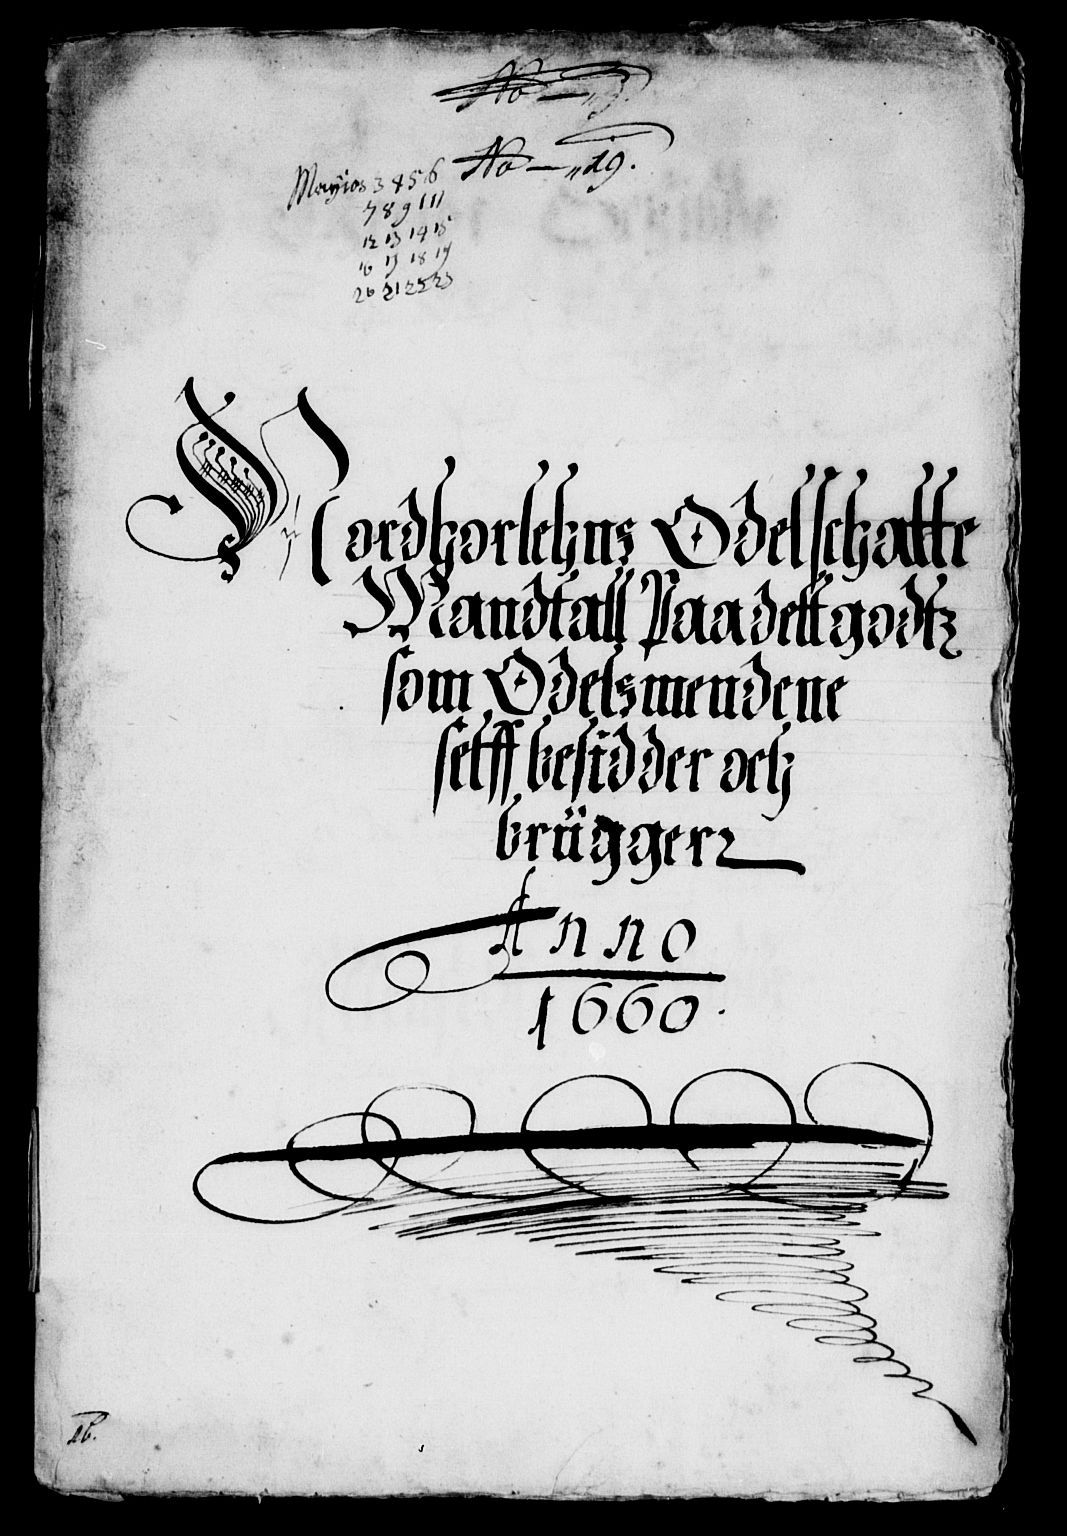 No — 
No — „19.
Mayios 3 4 5 6
7 8 9 1 11
12 13 14 15
16 17 18 19
20 21 22 23
Nordhorlehns Odelschatte
Mandtall Paa dett godtz
som Odelsmendene
selff besidder och
brügger
Anno
1660.
16.